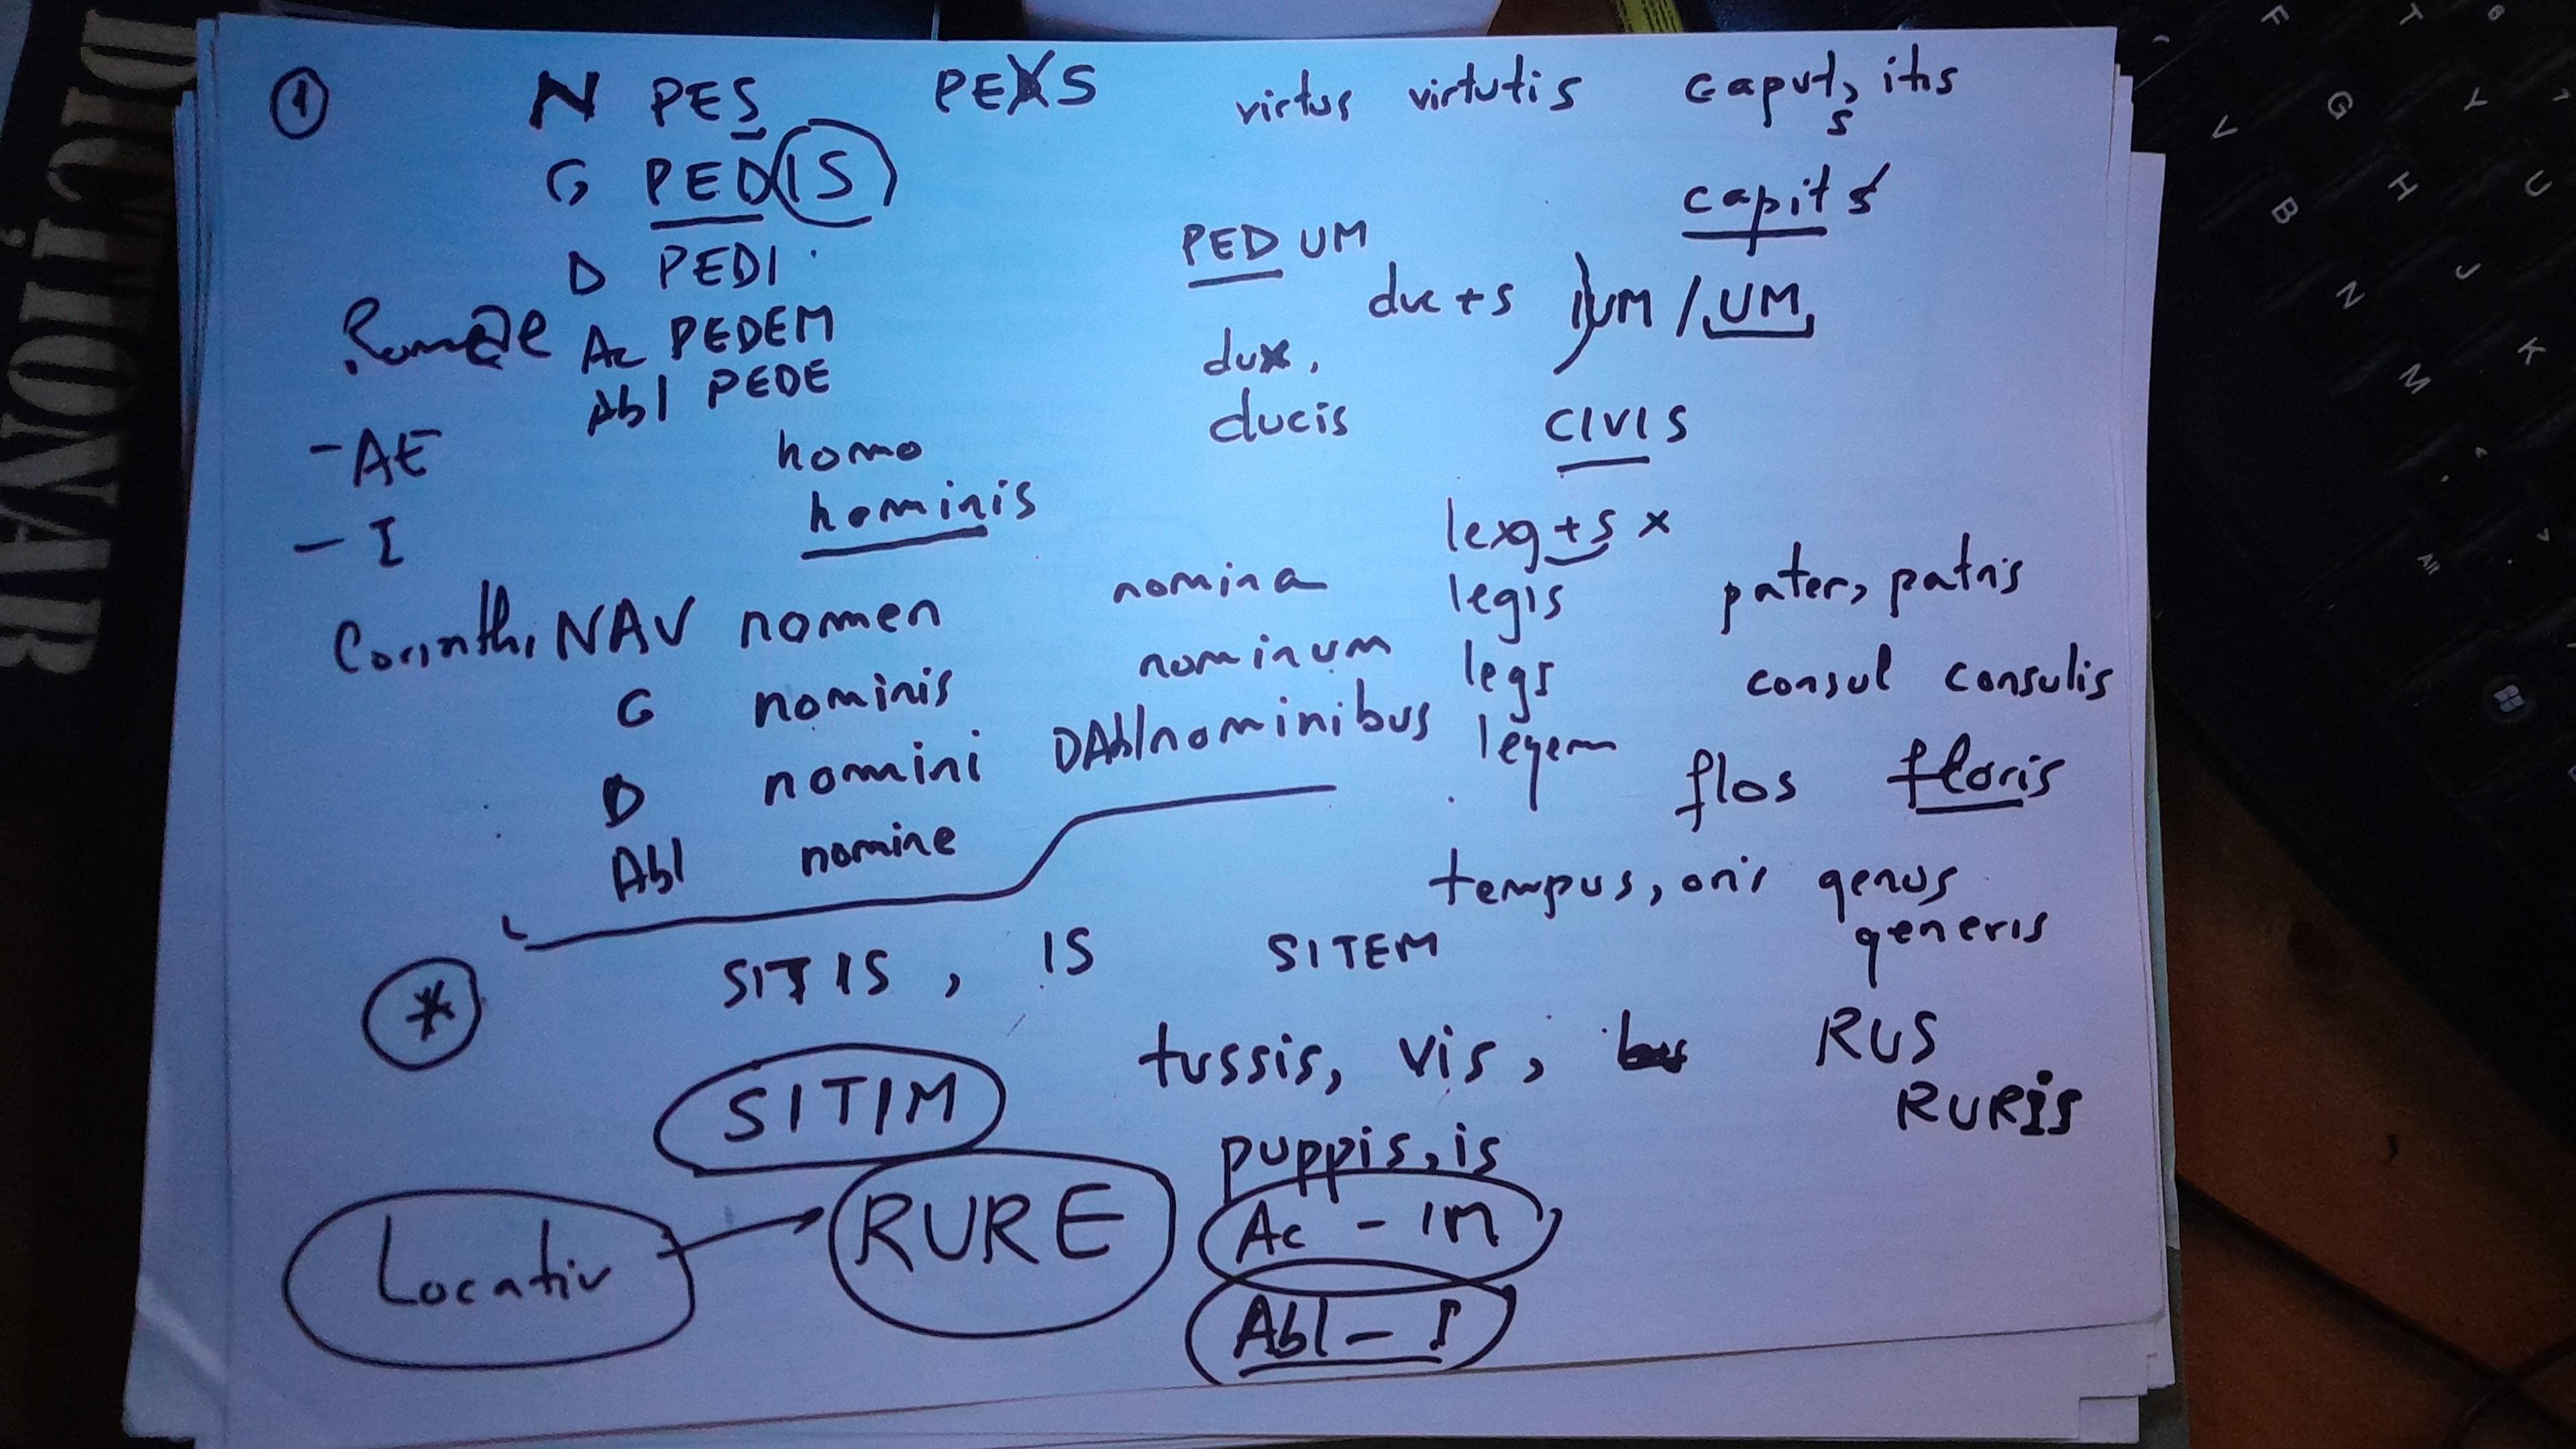 1
N PES PEXS virtus virtutis caput, itis
s
G PEDIS capits
D PEDI PED UM
Romae Ac PEDEM duc+s IUM / UM
Abl PEDE dux,
-AE homo ducis CIVIS
-I hominis lexg+s x
Corinthi NAV nomen nomina legis pater, patris
G nominis nominum legs consul consulis
D nomini DAbl nominibus legem flos floris
Abl nomine tempus, oris genus
generis
* SITIS, IS SITEM
SITIM tussis, vis, RUS
RURIS
puppis, is
Locativ RURE Ac - IM
Abl - I
DICȚIONAR